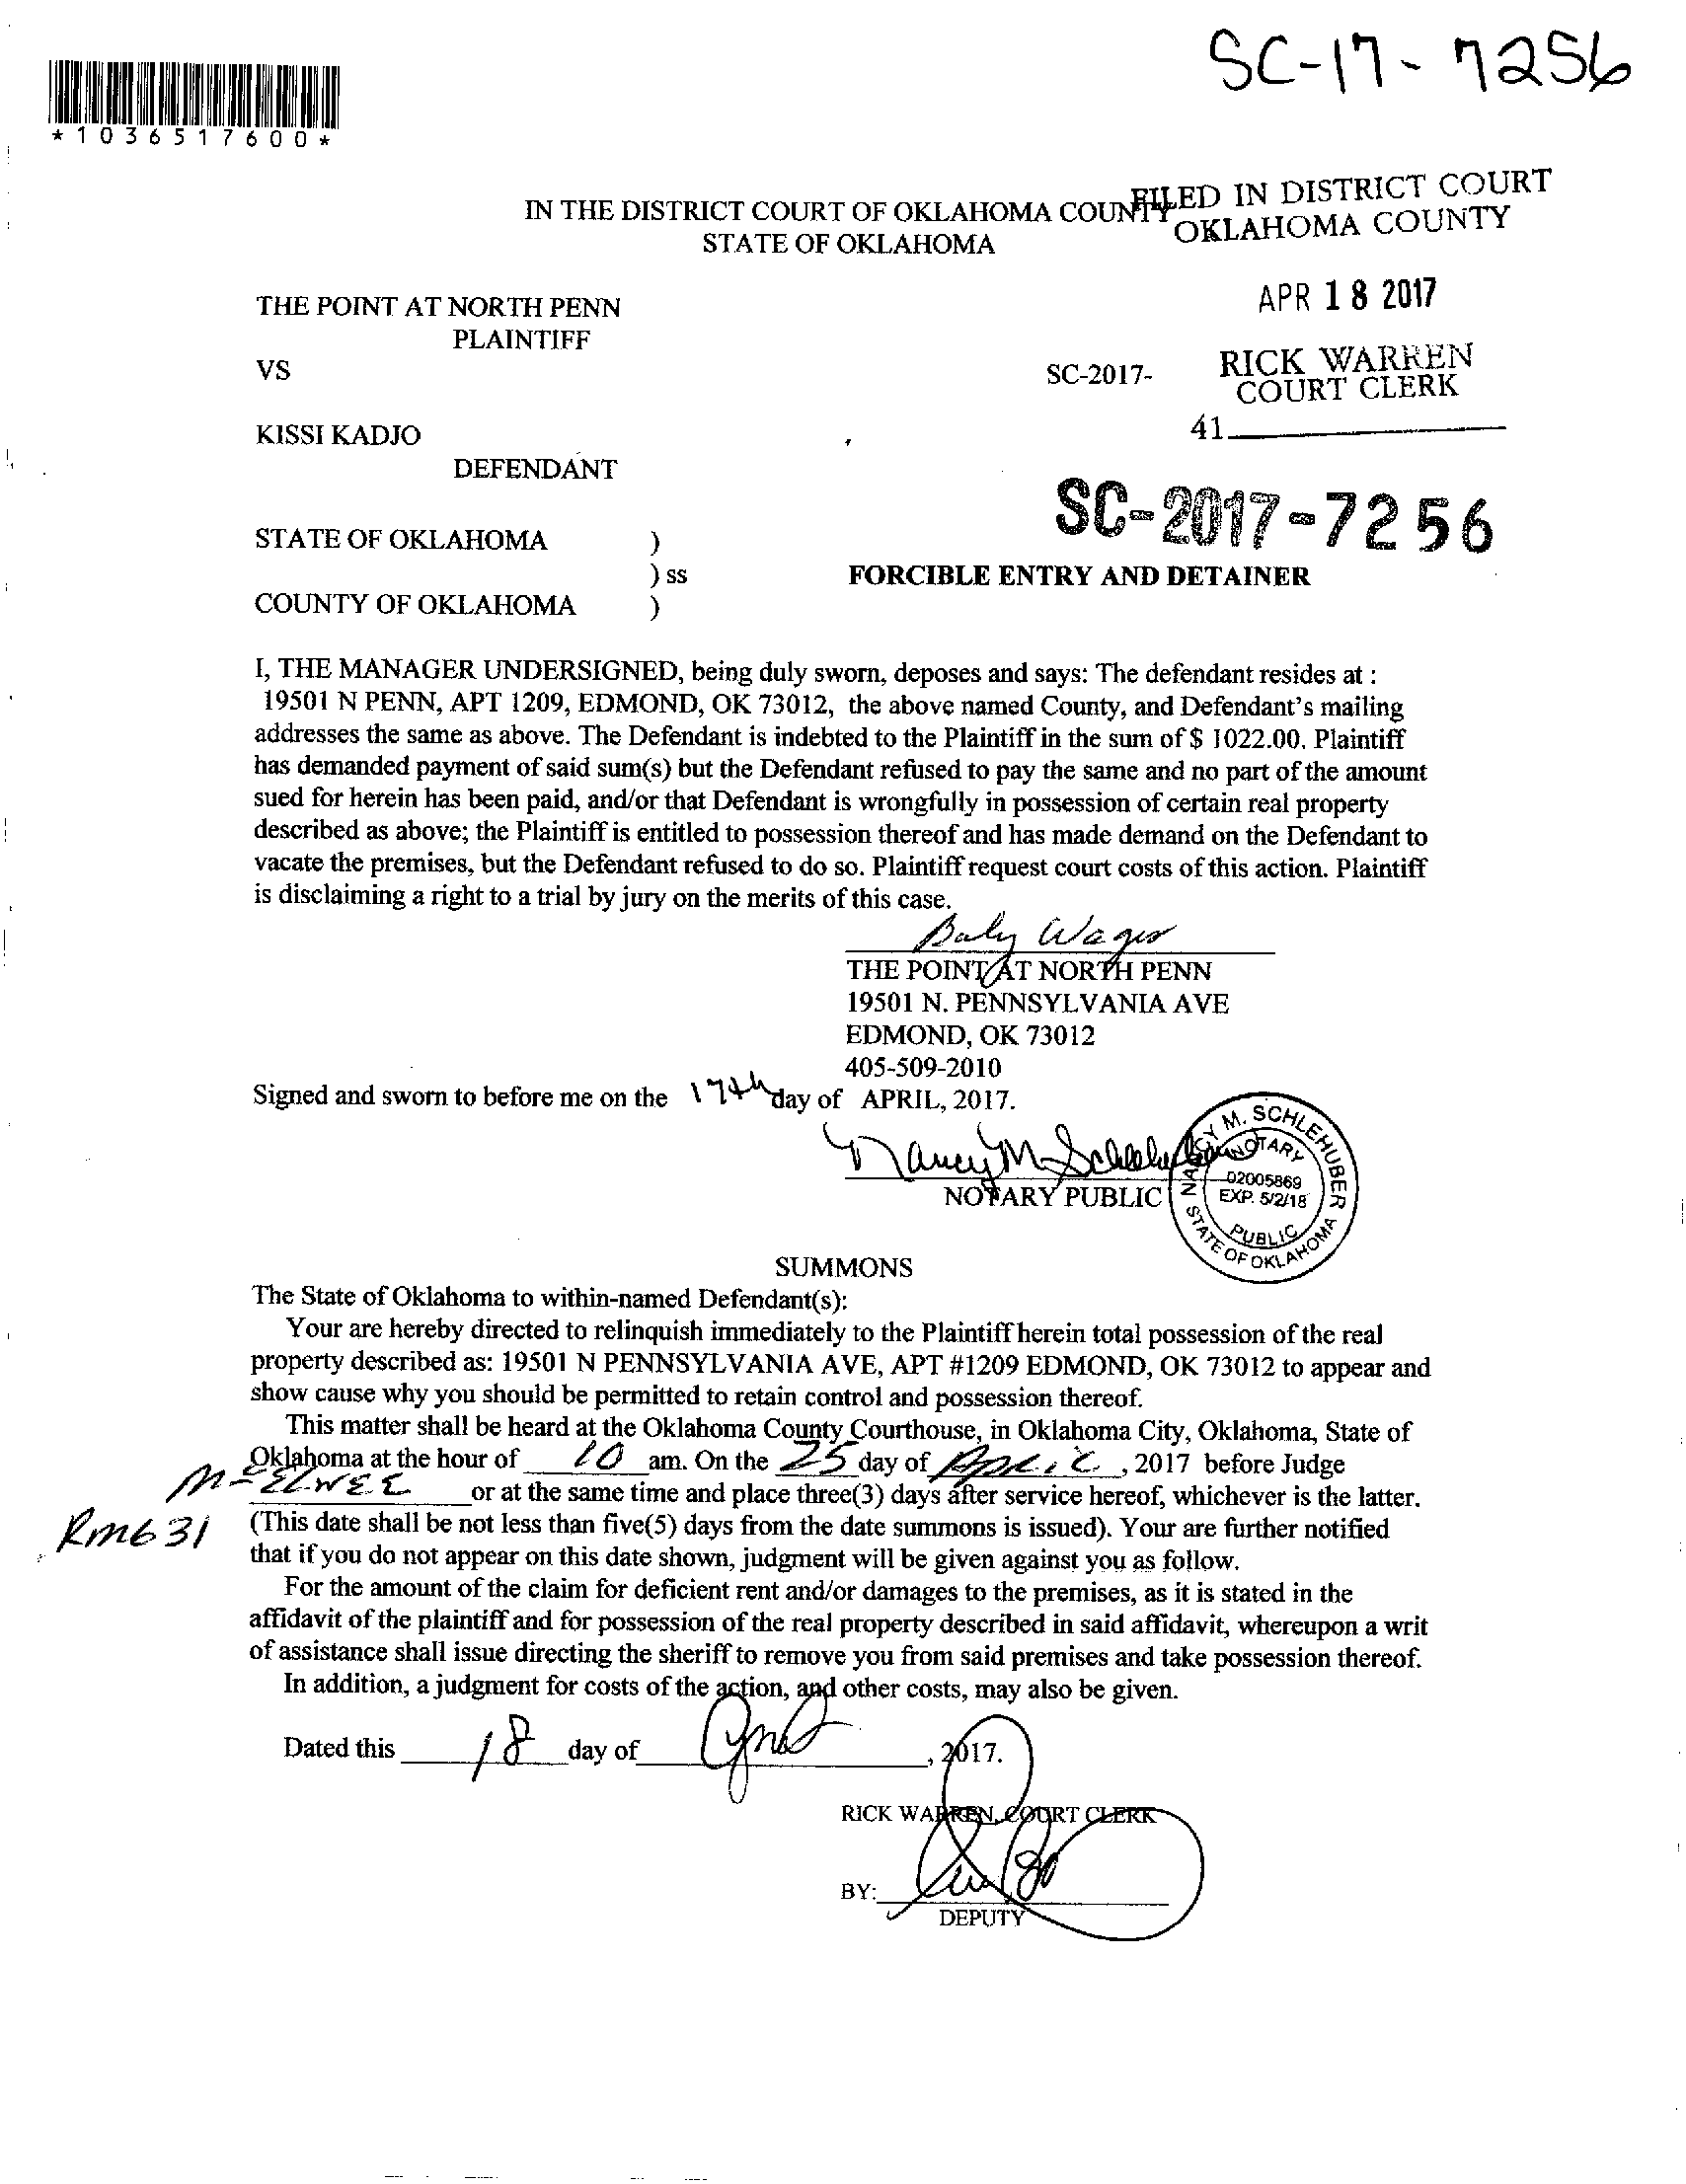 SC-17-7256
*1036517600*
IN THE DISTRICT COURT OF OKLAHOMA COUNTY
STATE OF OKLAHOMA
FILED IN DISTRICT COURT
OKLAHOMA COUNTY
APR 18 2017
RICK WARREN
COURT CLERK
41
THE POINT AT NORTH PENN
PLAINTIFF
VS
SC-2017-
KISSI KADJO
DEFENDANT
SC-2017-7256
STATE OF OKLAHOMA )
) ss
FORCIBLE ENTRY AND DETAINER
COUNTY OF OKLAHOMA )
I, THE MANAGER UNDERSIGNED, being duly sworn, deposes and says: The defendant resides at :
19501 N PENN, APT 1209, EDMOND, OK 73012, the above named County, and Defendant's mailing
addresses the same as above. The Defendant is indebted to the Plaintiff in the sum of $ 1022.00. Plaintiff
has demanded payment of said sum(s) but the Defendant refused to pay the same and no part of the amount
sued for herein has been paid, and/or that Defendant is wrongfully in possession of certain real property
described as above; the Plaintiff is entitled to possession thereof and has made demand on the Defendant to
vacate the premises, but the Defendant refused to do so. Plaintiff request court costs of this action. Plaintiff
is disclaiming a right to a trial by jury on the merits of this case.
THE POINT AT NORTH PENN
19501 N. PENNSYLVANIA AVE
EDMOND, OK 73012
405-509-2010
Signed and sworn to before me on the 17th day of APRIL, 2017.
Nancy M Schlehuber
NOTARY PUBLIC
NANCY M. SCHLEHUBER
NOTARY
02005869
EXP. 5/2/18
PUBLIC
STATE OF OKLAHOMA
SUMMONS
The State of Oklahoma to within-named Defendant(s):
Your are hereby directed to relinquish immediately to the Plaintiff herein total possession of the real
property described as: 19501 N PENNSYLVANIA AVE, APT #1209 EDMOND, OK 73012 to appear and
show cause why you should be permitted to retain control and possession thereof.
This matter shall be heard at the Oklahoma County Courthouse, in Oklahoma City, Oklahoma, State of
Oklahoma at the hour of 10 am. On the 25 day of April, 2017 before Judge
McELWEE or at the same time and place three(3) days after service hereof, whichever is the latter.
Rm631
(This date shall be not less than five(5) days from the date summons is issued). Your are further notified
that if you do not appear on this date shown, judgment will be given against you as follow.
For the amount of the claim for deficient rent and/or damages to the premises, as it is stated in the
affidavit of the plaintiff and for possession of the real property described in said affidavit, whereupon a writ
of assistance shall issue directing the sheriff to remove you from said premises and take possession thereof.
In addition, a judgment for costs of the action, and other costs, may also be given.
Dated this 18 day of April, 2017.
RICK WARREN, COURT CLERK
BY:
DEPUTY